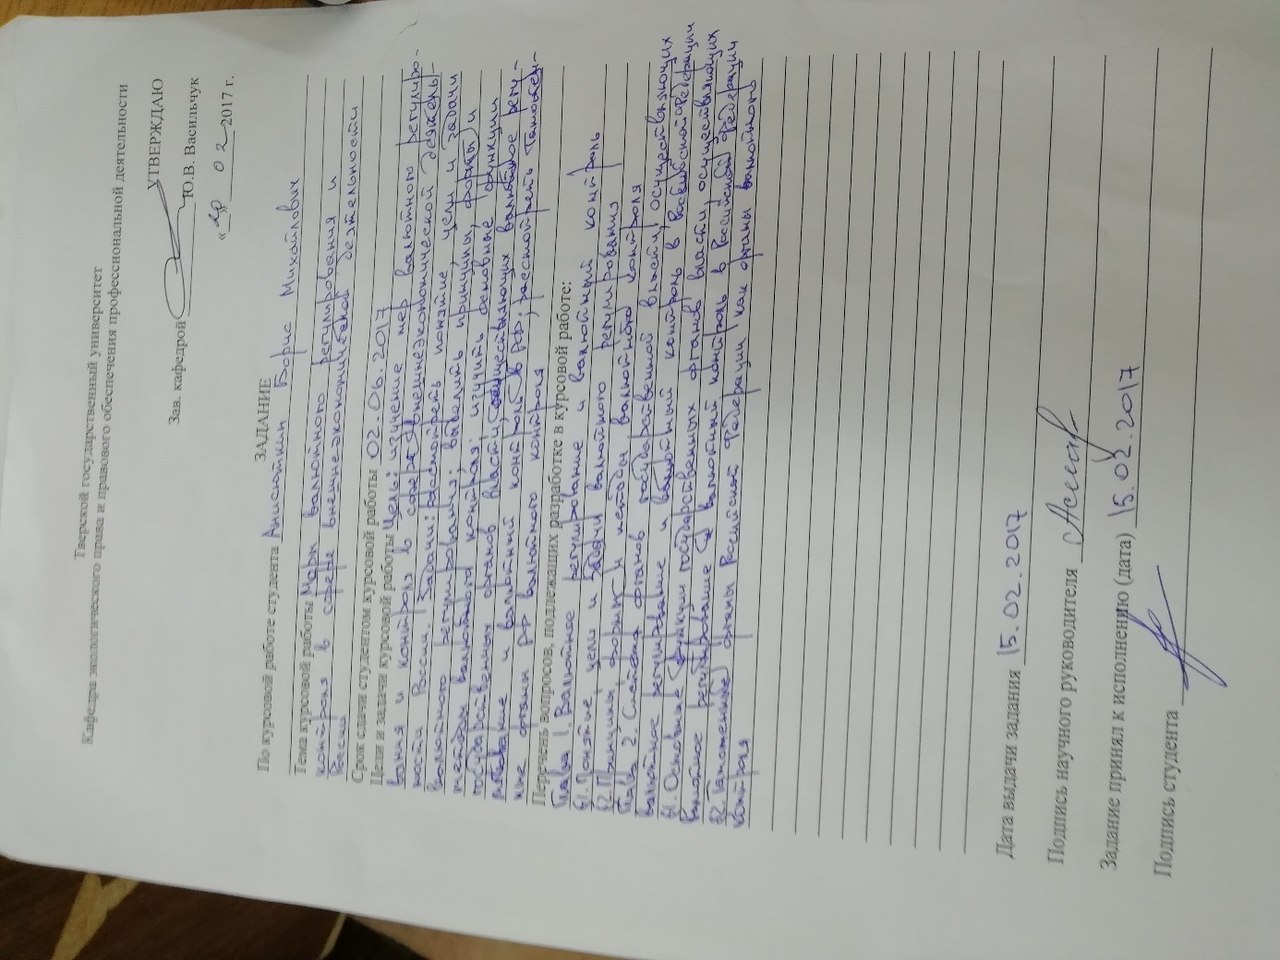 Тверской государственный университет
Кафедра экологического права и правового обеспечения профессиональной деятельности
УТВЕРЖДАЮ
Зав. кафедрой Ю.В. Васильчук
« » 02 2017 г.
ЗАДАНИЕ
По курсовой работе студента Анисимкин Борис Михайлович
Тема курсовой работы Меры валютного регулирования и
контроля в сфере внешнеэкономической деятельности
России
Срок сдачи студентом курсовой работы 02.06.2017
Цели и задачи курсовой работы Цель: изучение мер валютного регулиро-
вания и контроля в сфере внешнеэкономической деятель-
ности России. Задачи: рассмотреть понятие цели и задачи
валютного регулирования; выделить принципы, формы и
методы валютного контроля; изучить основные функции
государственных органов власти, осуществляющих валютное регу-
лирование и валютный контроль в РФ; рассмотреть Таможен-
ные органы РФ валютного контроля
Перечень вопросов, подлежащих разработке в курсовой работе:
Глава 1. Валютное регулирование и валютный контроль
§1. Понятие цели и задачи валютного регулирования
§2. Принципы, формы и методы валютного контроля
Глава 2. Система органов государственной власти, осуществляющих
валютное регулирование и валютный контроль в Российской Федерации
§1. Основные функции государственных органов власти, осуществляющих
валютное регулирование и валютный контроль в Российской Федерации
§2. Таможенные органы Российской Федерации как органы валютного
контроля
Дата выдачи задания 15.02.2017
Подпись научного руководителя
Задание принял к исполнению (дата) 15.02.2017
Подпись студента